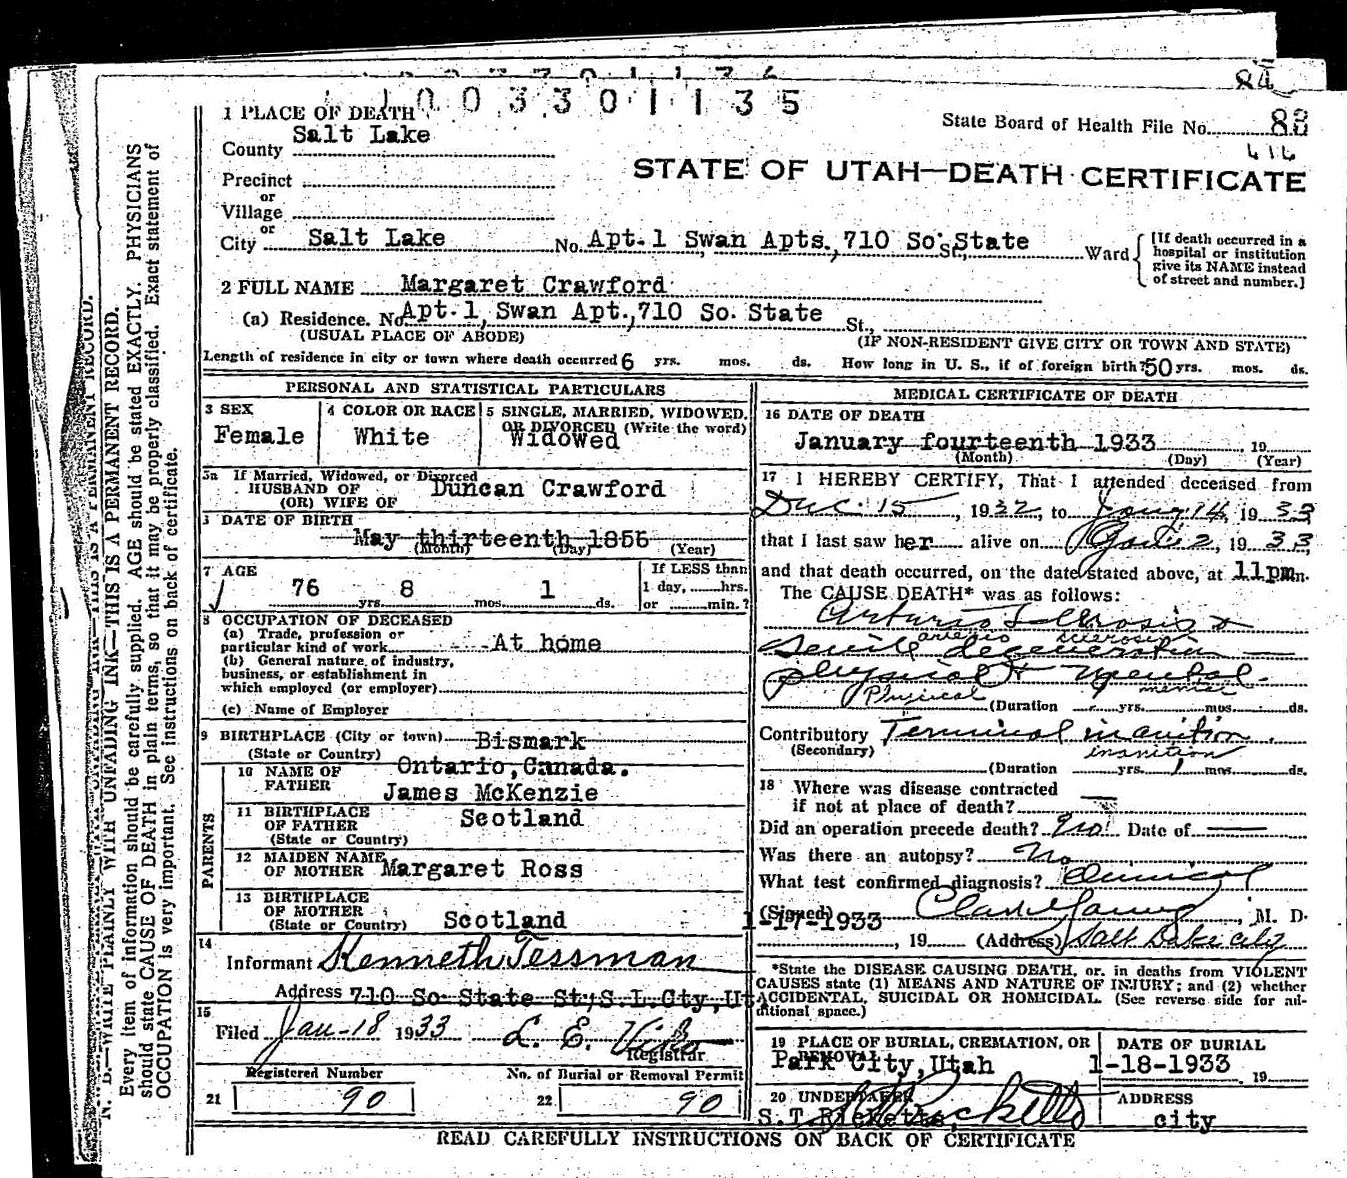 1003301135
84
1 PLACE OF DEATH
State Board of Health File No. 88
County Salt Lake
STATE OF UTAH—DEATH CERTIFICATE
Precinct
or
Village
or
City Salt Lake No. Apt. 1 Swan Apts., 710 So. State St., Ward
[If death occurred in a hospital or institution give its NAME instead of street and number.]
2 FULL NAME Margaret Crawford
(a) Residence. No. Apt. 1, Swan Apt., 710 So. State St.,
(USUAL PLACE OF ABODE) (IF NON-RESIDENT GIVE CITY OR TOWN AND STATE)
Length of residence in city or town where death occurred 6 yrs. mos. ds. How long in U. S., if of foreign birth? 50 yrs. mos. ds.
PERSONAL AND STATISTICAL PARTICULARS
3 SEX Female
4 COLOR OR RACE White
5 SINGLE, MARRIED, WIDOWED, OR DIVORCED (Write the word) Widowed
5a If Married, Widowed, or Divorced
HUSBAND OF
(OR) WIFE OF Duncan Crawford
DATE OF BIRTH
May thirteenth 1856
(Month) (Day) (Year)
7 AGE
76 yrs. 8 mos. 1 ds.
If LESS than
1 day, hrs.
or min.?
8 OCCUPATION OF DECEASED
(a) Trade, profession or
particular kind of work At home
(b) General nature of industry,
business, or establishment in
which employed (or employer)
(c) Name of Employer
9 BIRTHPLACE (City or town) Bismark
(State or Country) Ontario, Canada.
PARENTS
10 NAME OF FATHER James McKenzie
11 BIRTHPLACE OF FATHER Scotland
(State or Country)
12 MAIDEN NAME OF MOTHER Margaret Ross
13 BIRTHPLACE OF MOTHER
(State or Country) Scotland
14
Informant Kenneth Tessman
Address 710 So State St, S. L. Cty, Ut
15
Filed Jan-18 1933 L. E. Viko
Registrar
Registered Number
21 90
No. of Burial or Removal Permit
22 90
MEDICAL CERTIFICATE OF DEATH
16 DATE OF DEATH
January fourteenth 1933 19
(Month) (Day) (Year)
17 I HEREBY CERTIFY, That I attended deceased from
Dec. 15, 1932, to Jany 14, 1933
that I last saw her alive on 1933,
and that death occurred, on the date stated above, at 11pm.
The CAUSE DEATH* was as follows:
Arterio Sclerosis &
arterio sclerosis
Senile degeneration
physical & mental.
Physical mental
(Duration yrs. mos. ds.
Contributory Terminal inanition.
(Secondary) inanition
(Duration yrs. 1 mos. ds.
18 Where was disease contracted
if not at place of death?
Did an operation precede death? No. Date of
Was there an autopsy? No
What test confirmed diagnosis? Clinical
(Signed) , M. D.
1-17-1933
, 19 (Address) Salt Lake City
*State the DISEASE CAUSING DEATH, or, in deaths from VIOLENT
CAUSES state (1) MEANS AND NATURE OF INJURY; and (2) whether
ACCIDENTAL, SUICIDAL OR HOMICIDAL. (See reverse side for additional space.)
19 PLACE OF BURIAL, CREMATION, OR REMOVAL
Park City, Utah
DATE OF BURIAL
1-18-1933 19
20 UNDERTAKER
S. T. Ricketts,
ADDRESS
city
READ CAREFULLY INSTRUCTIONS ON BACK OF CERTIFICATE
N. B.—WRITE PLAINLY WITH UNFADING INK—THIS IS A PERMANENT RECORD.
Every item of information should be carefully supplied. AGE should be stated EXACTLY. PHYSICIANS
should state CAUSE OF DEATH in plain terms, so that it may be properly classified. Exact statement of
OCCUPATION is very important. See instructions on back of certificate.